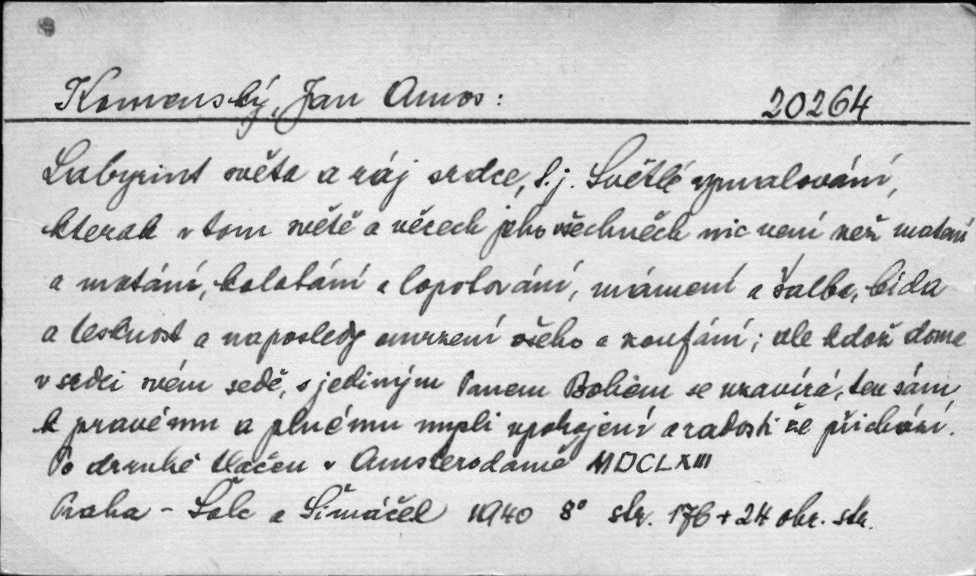 Komenský, Jan Amos: 20264
Labyrint světa a ráj srdce, t.j. Světlé vymalování,
kterak v tom světě a věcech jeho všechněch nic není než matení
a motání, kolotání a lopotování, mámení a šalba, bída
a tesknost a naposledy omrzení všeho a zoufání; ale kdož doma
v srdci svém sedě, s jediným Pánem Bohem se uzavírá, ten sám
k pravému a plnému mysli upokojení a radosti že přichází.
Po druhé tlačen v Amsterodamě MDCLXIII
Praha - Šolc a Šimáček 1940 8° str. 176 + 24 obr. str.